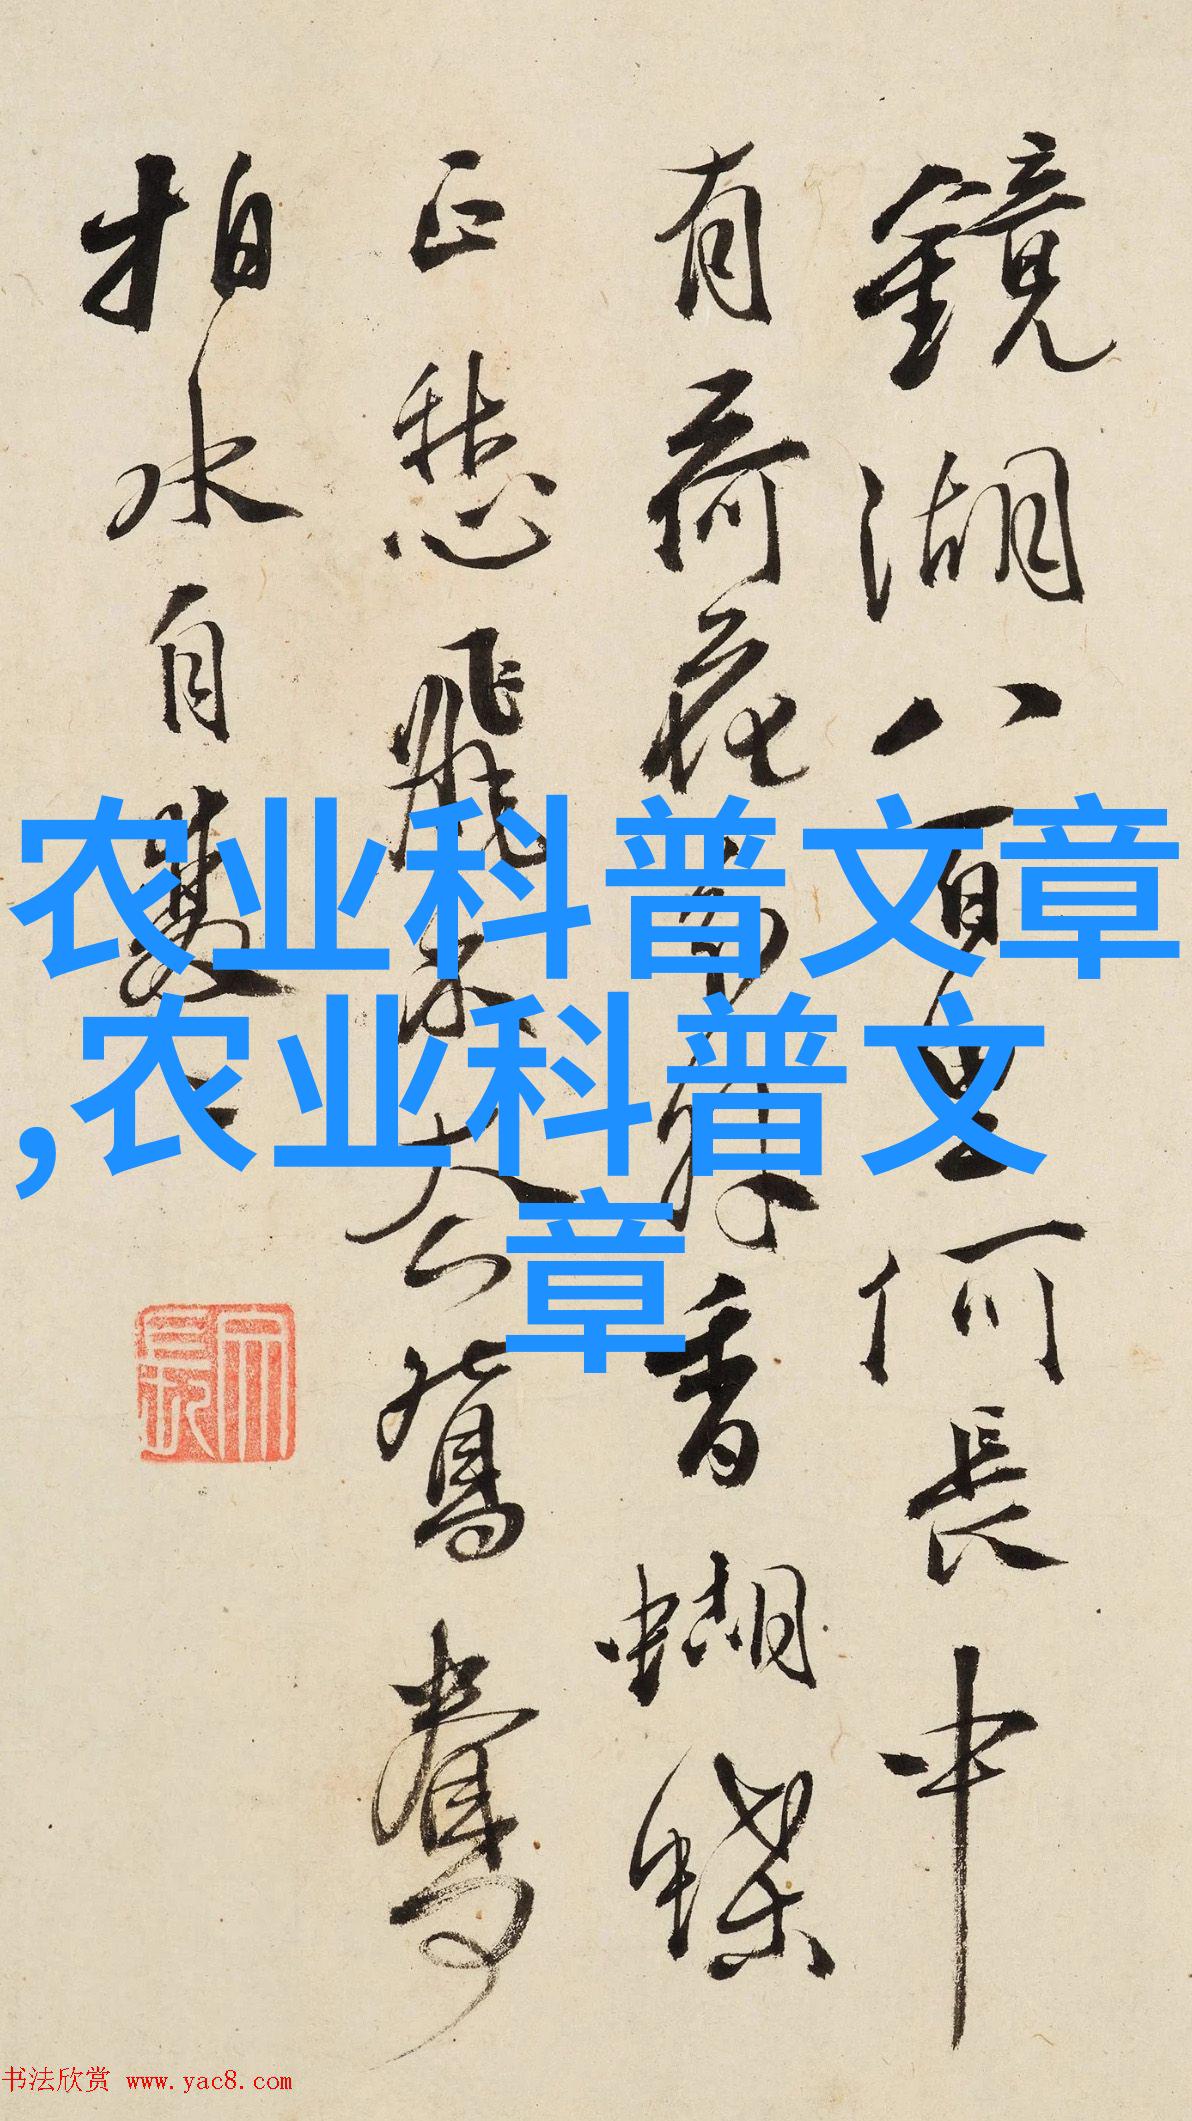 鏡湖八百里何長中
有荷花香蝴蝶
正愁飛不去鴛鴦
拍水自雙
农业科普文章
,农业科普文
章
书法欣赏 www.yac8.com